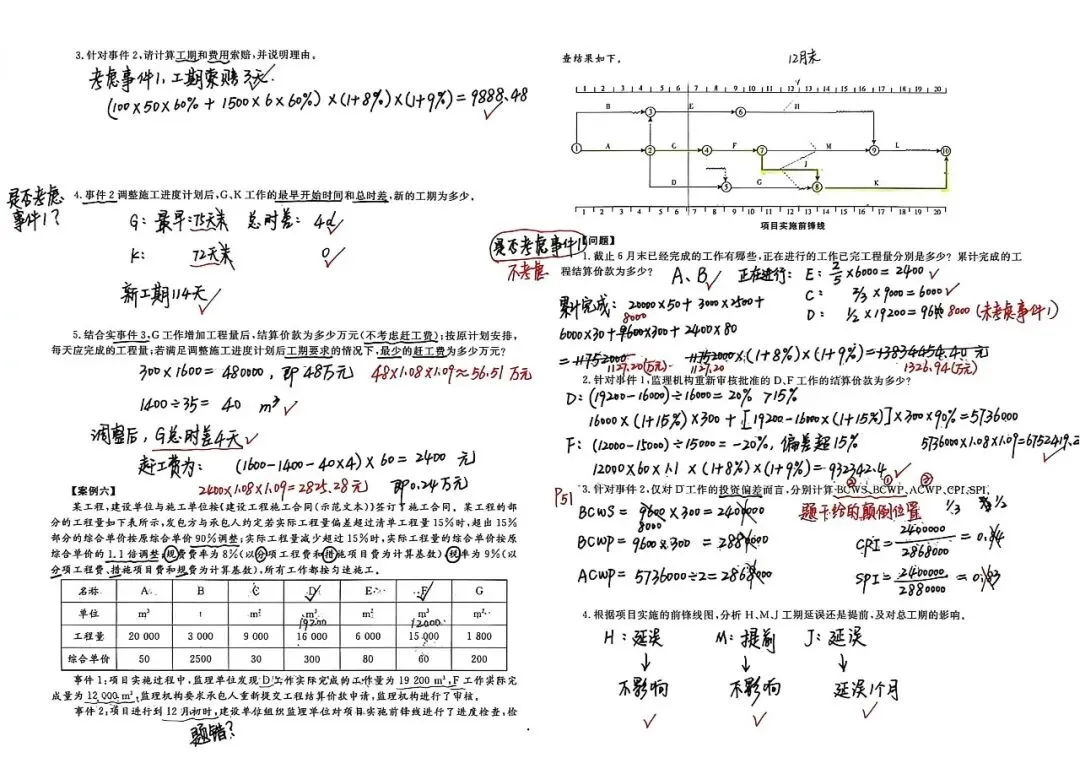 3.针对事件2,请计算工期和费用索赔,并说明理由。
考虑事件1,工期索赔3天.
(100×50×60%+1500×6×60%)×(1+8%)×(1+9%)=9888.48
是否考虑
事件1?
4.事件2调整施工进度计划后,G、K工作的最早开始时间和总时差,新的工期为多少。
G: 最早:75天末 总时差: 4d
K: 72天末 0
新工期114天
5.结合实事件3,G工作增加工程量后,结算价款为多少万元(不考虑赶工费);按原计划安排,
每天应完成的工程量;若满足调整施工进度计划后工期要求的情况下,最少的赶工费为多少万元?
300×1600=480000,即48万元 48×1.08×1.09≈56.51万元
1400÷35=40 m³
调整后,G总时差4天
赶工费为: (1600-1400-40×4)×60=2400 元
2400×1.08×1.09=2825.28元 即0.24万元
【案例六】
某工程,建设单位与施工单位按《建设工程施工合同(示范文本)》签订了施工合同。某工程的部
分的工程量如下表所示,发包方与承包人约定若实际工程量偏差超过清单工程量15%时,超出15%
部分的综合单价按原综合单价90%调整;实际工程量减少超过15%时,实际工程量的综合单价按原
综合单价的1.1倍调整,规费费率为8%(以分项工程费和措施项目费为计算基数),税率为9%(以
分项工程费、措施项目费和规费为计算基数),所有工作都按匀速施工。
名称 A B C D E F G
单位 m³ t m² m³ m² m³ m²
19200 12000
工程量 20 000 3 000 9 000 16 000 6 000 15 000 1 800
综合单价 50 2500 30 300 80 60 200
事件1:项目实施过程中,监理单位发现D工作实际完成的工作量为19 200 m³,F工作实际完
成量为12 000 m³,监理机构要求承包人重新提交工程结算价款申请,监理机构进行了审核。
事件2:项目进行到12月初时,建设单位组织监理单位对项目实施前锋线进行了进度检查,检
题错?
查结果如下。
12月末
1 2 3 4 5 6 7 8 9 10 11 12 13 14 15 16 17 18 19 20
B E H
① ③ ⑥
A G F M L
② ④ ⑦ ⑨ ⑩
J
D G K
⑤ ⑧
1 2 3 4 5 6 7 8 9 10 11 12 13 14 15 16 17 18 19 20
项目实施前锋线
是否考虑事件1
不考虑
【问题】
1.截止6月末已经完成的工作有哪些,正在进行的工作已完工程量分别是多少?累计完成的工
程结算价款为多少?
A、B 正在进行: E: 2/5×6000=2400
C: 2/3×9000=6000
D: 1/2×19200=9600 8000(未考虑事件1)
累计完成: 20000×50+3000×2500+
8000
6000×30+9600×300+2400×80
=11752000 11752000×(1+8%)×(1+9%)=13834454.40元
1127.20(万元) 1127.20 1326.94(万元)
2.针对事件1,监理机构重新审核批准的D、F工作的结算价款为多少?
D: (19200-16000)÷16000=20%>15%
16000×(1+15%)×300+[19200-16000×(1+15%)]×300×90%=5736000
F: (12000-15000)÷15000=-20%,偏差超15% 5736000×1.08×1.09=6752419.2
12000×60×1.1×(1+8%)×(1+9%)=932342.4
P51
② ① ③
3.针对事件2,仅对D工作的投资偏差而言,分别计算BCWS、BCWP、ACWP、CPI、SPI。
题干给的颠倒位置
1/3 1/2
BCWS=9600×300=2400000
8000
BCWP=9600×300=2880000
ACWP=5736000÷2=2868000
CPI=2400000/2868000=0.84
SPI=2400000/2880000=0.83
4.根据项目实施的前锋线图,分析H、M、J工期延误还是提前,及对总工期的影响。
H:延误 M:提前 J:延误
不影响 不影响 延误1个月